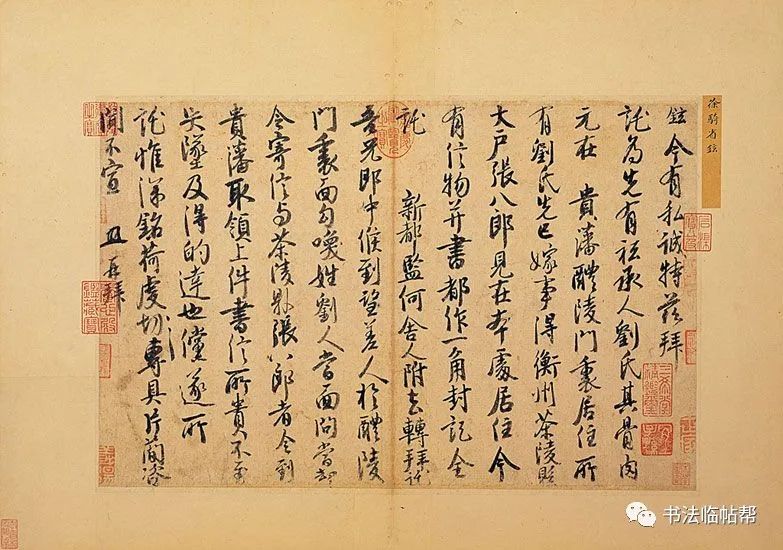 徐騎省鉉
鉉今有私誠特茲拜
託為先有祗承人劉氏其骨肉
元在 貴藩醴陵門裏居住所
有劉氏先已嫁事得衡州茶陵縣
大戶張八郎見在本處居住今
有信物并書都作一角封記全
託 新都監何舍人附去轉拜託
吾兄郎中候到望差人於醴陵
門裏面勾喚姓劉人當面問當却
令寄信与茶陵縣張八郎者令到
貴藩取領上件書信所貴不至
失墜及得的達也儻遂所
託惟深銘荷虔切專具片簡咨
聞不宣 再拜
三希堂精鑑璽
宜子孫
书法临帖帮